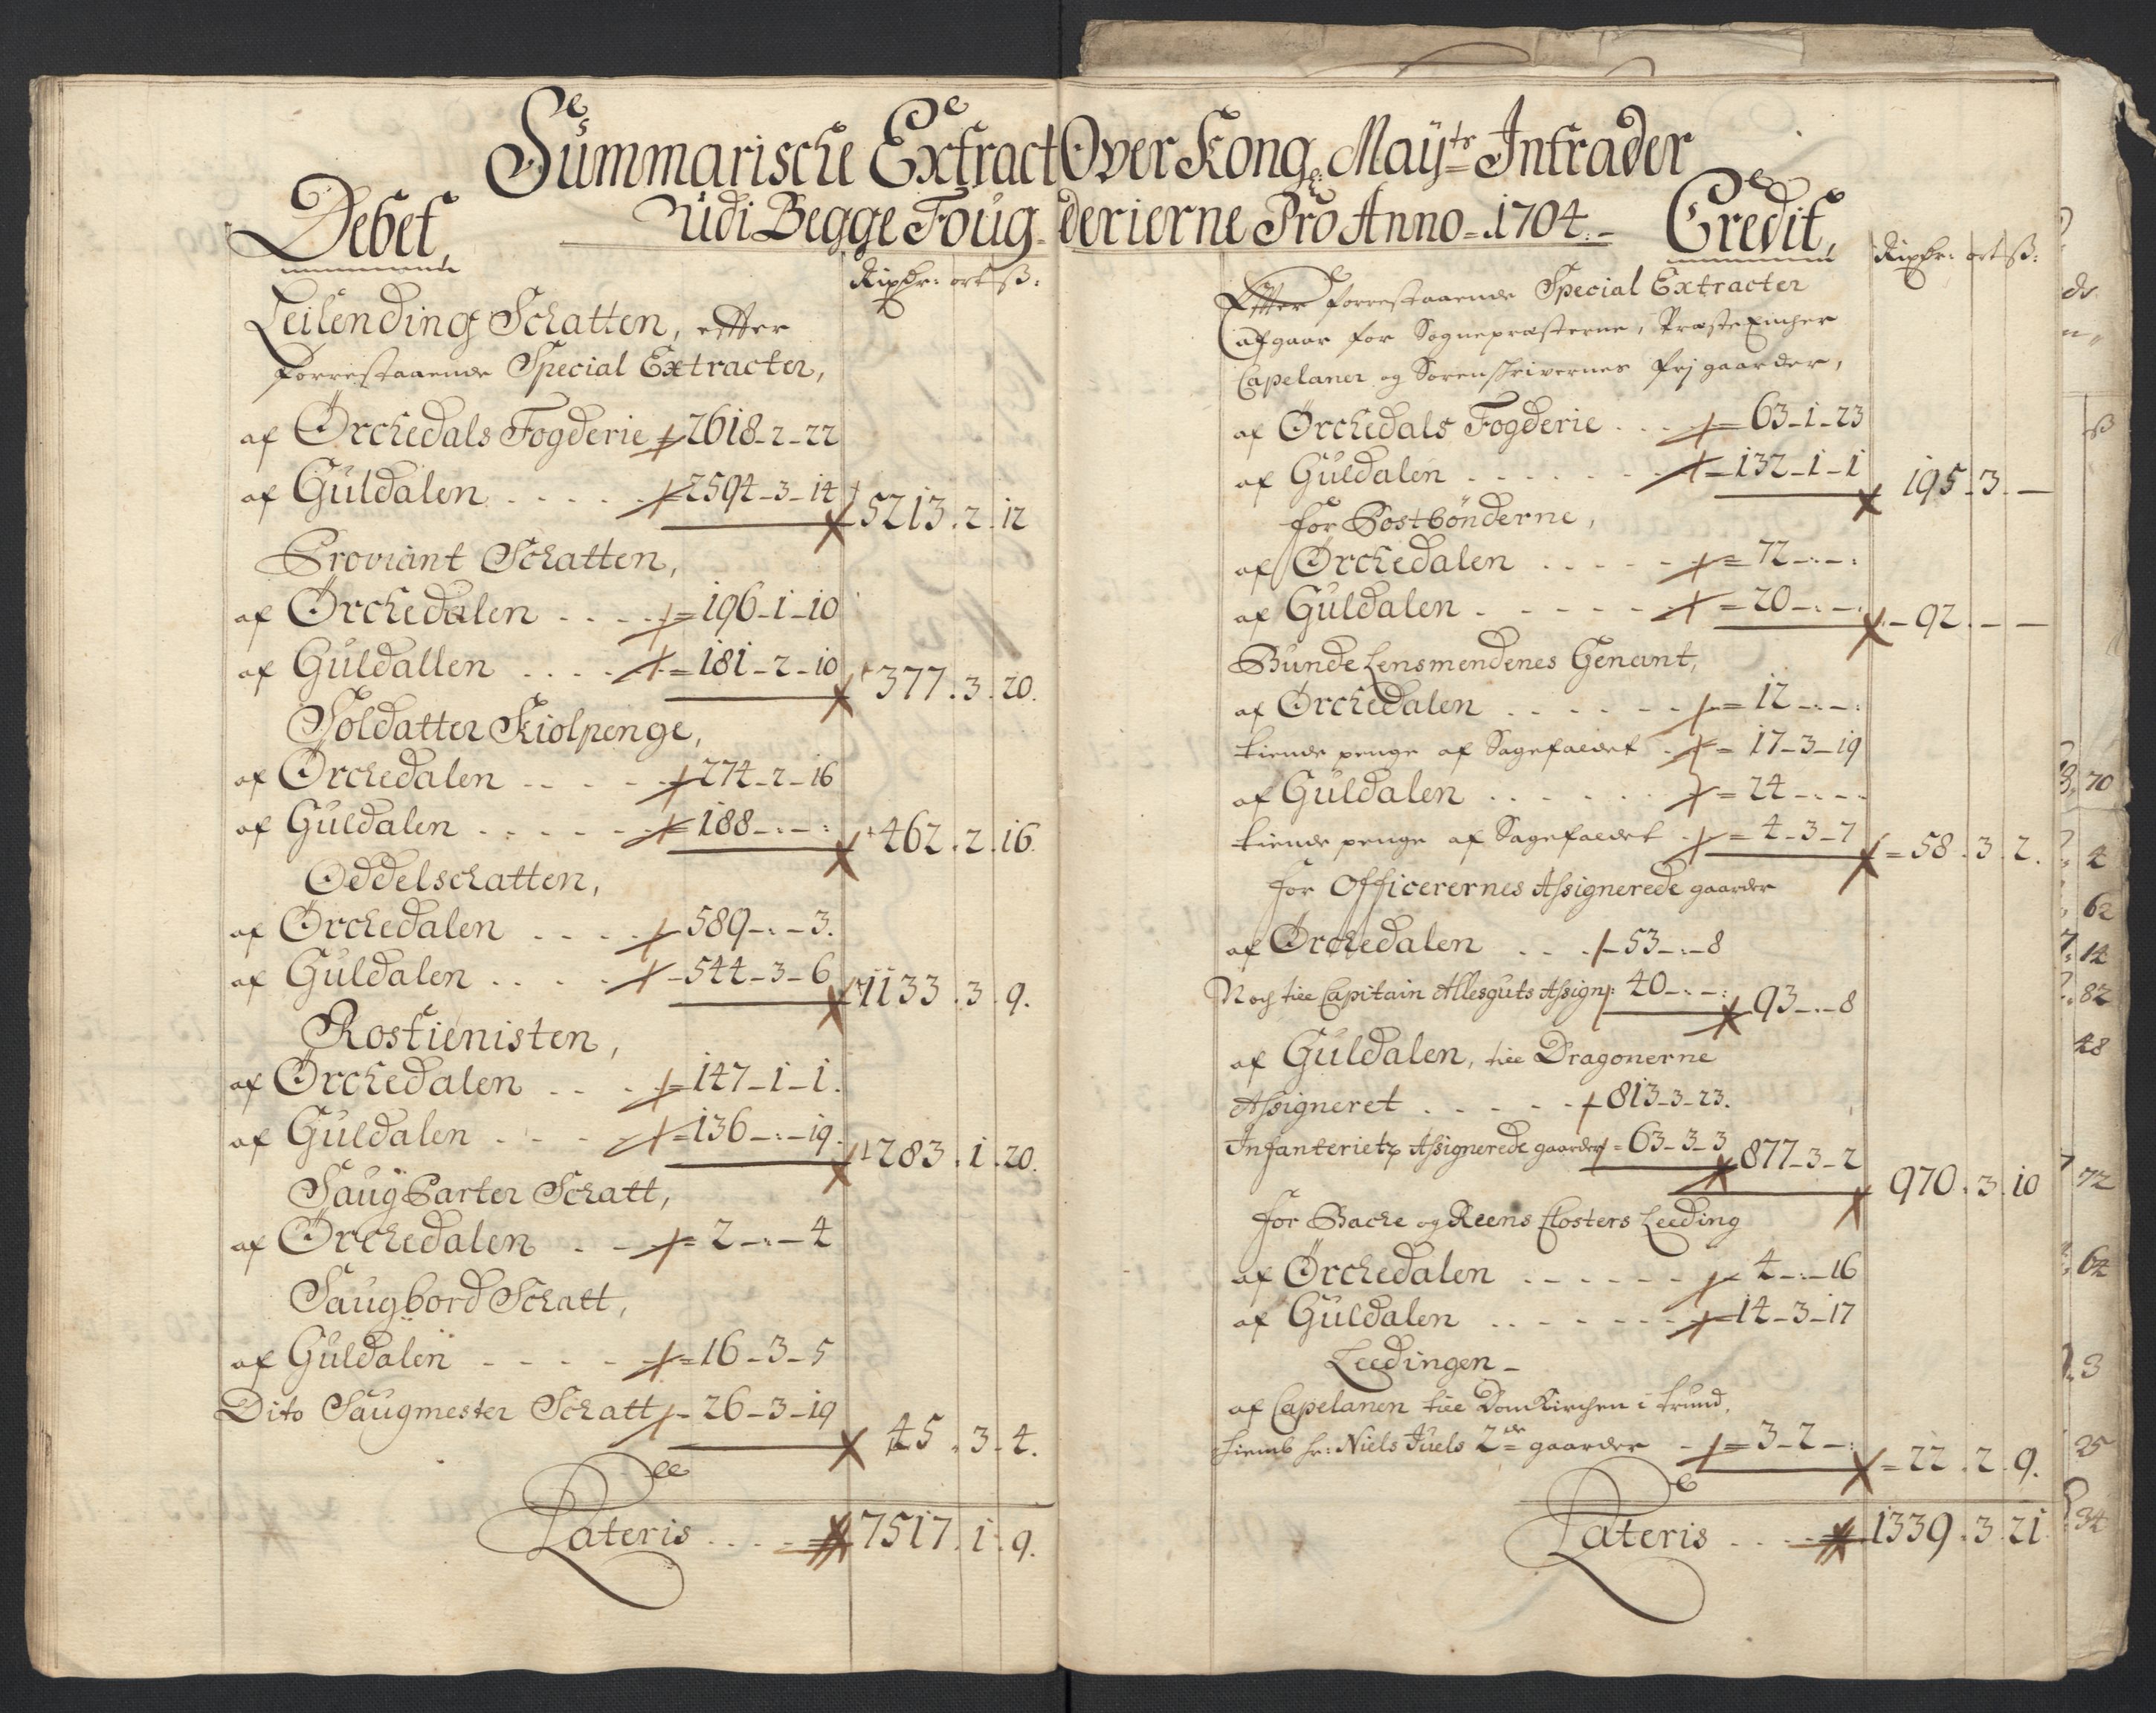 Summarische Extract Over Kong. Mayts Intrader
Udi Begge Foug-derierne Pro Anno 1704.
Debet,
Rixdr: ort ß:
Leilending Schatten, effter
forrestaaende Special Extracter,
af Ørchedals Fogderie 2618-2-22
af Guldalen . . . . 2594-3-14 5213.2.12
Proviant Schatten,
af Ørchedalen . . . = 196-1-10
af Guldallen . . . . = 181-2-10 377.3.20.
Soldatter Kiolpenge,
af Ørchedalen . . . 274-2-16
af Guldalen . . . . . = 188-:-: 462.2.16.
Oddelschatten,
af Ørchedalen . . . . 589-:-3.
af Guldalen . . . . -544-3-6 1133.3.9.
Rostienisten,
af Ørchedalen . . . = 147-1-1.
af Guldalen . . . = 136-:-19. 283.1.20.
Saug Parter Schatt,
af Ørchedalen . . = 2-:-4
Saugbord Schatt,
af Guldalen . . . . = 16-3-5
Dito Saugmester Schatt - 26-3-19 45.3-4.
Lateris . . . . 7517.1.9.
Credit,
Rixdr: ort ß:
Effter forrestaaende Special Extracter
afgaar for Sognepræsterne, Præste Encher
Capelaner og Sorenskrivernes frj gaarder,
af Ørchedals Fogderie . . . = 63-1-23
af Guldalen . . . . . . = 132-1-1 195.3.-
for Postbønderne,
af Ørchedalen . . . . . = 72-:-:
af Guldalen . . . . . = 20-:-: -92.-.-
Bunde Lensmendenes Genant,
af Ørchedalen . . . . . . = 12-:-:
tiende penge af Sagefaldet . = 17-3-19
af Guldalen . . . . . . = 24-:-:
tiende penge af Sagefaldet . = 4-3-7 = 58.3.2.
for Officerernes Assignerede gaarder
af Ørchedalen . . . 53-:-8
Noch till Capitain Allesguts Assign: 40-:-: 93-:-8
af Guldalen, till Dragonerne
Assigneret . . . . . 813-3-23.
Infanterietz Assignerede gaarder = 63-3-3 877-3-2 970.3.10
for Bache og Reens Closters Leeding
af Ørchedalen . . . . . . 4-:-16
af Guldalen . . . . . . = 14-3-17
Leedingen -
af Capelanen till Dom Kirchen i trund.
hiemb hr: Niels Juels 2de gaarder - = 3-2-: = 22.2.9.
Lateris . . . . 1339.3.21.